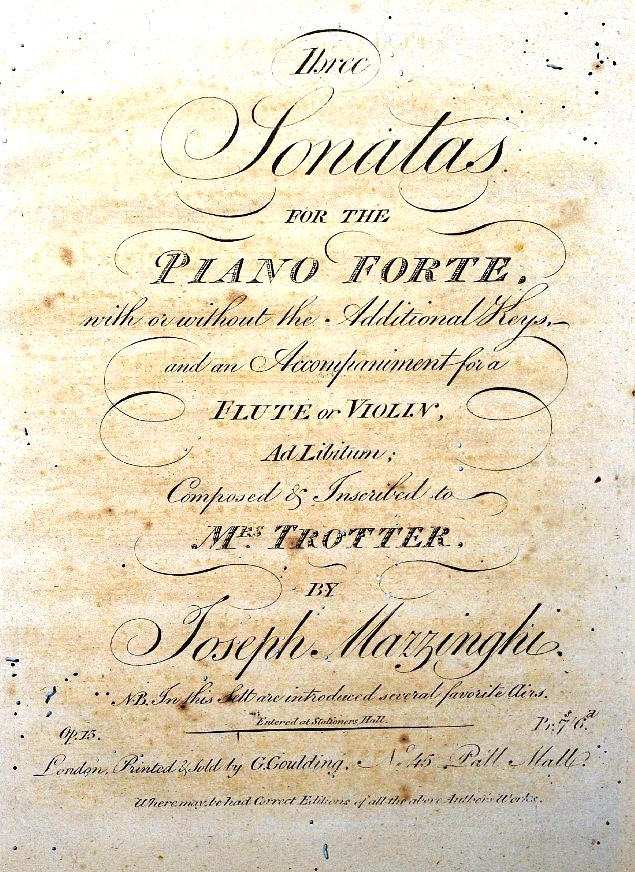 Three
Sonatas
FOR THE
PIANO FORTE,
with or without the Additional Keys,
and an Accompaniment for a
FLUTE or VIOLIN,
Ad Libitum;
Composed & Inscribed to
MRS. TROTTER.
BY
Joseph Mazzinghi.
N.B. In this Sett are introduced several favorite Airs.
Entered at Stationers Hall.
Op. 15. Pr. 7s 6d
London, Printed & Sold by G. Goulding, No. 45 Pall Mall.
Where may be had Correct Editions of all the above Authors Works.